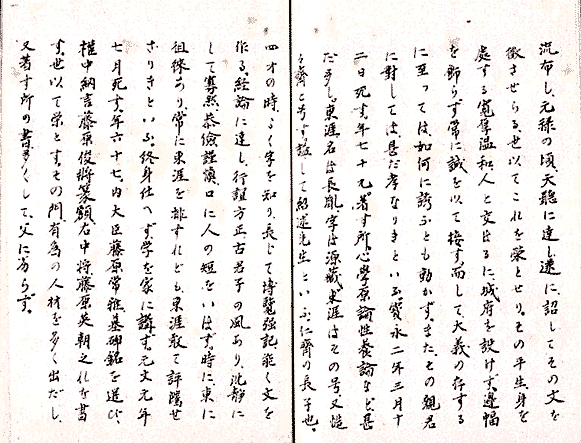 流布し、元禄の頃天聴に達し、遂に詔してその文を
徴させらる、世以てこれを栄とせり。その平生身を
處する寛厚温和、人と交はるに、城府を設けず、邊幅
を飾らず常に誠を以て接す。而して、大義の存する
に至つては、如何に誘ふとも動かず。また、その親君
に対しては、甚だ孝なりきといふ。寳永二年三月十
二日死す。年七十九。著す所、心学原論性善論など甚
だ多し。東涯名は長胤、字は源蔵、東涯はその号又慥
々齋と号す。諡して紹述先生といふ。仁齋の長子也。
四才の時、よく字を知り、長じて博覧強記、能く文を
作る。経論に達し、行誼方正、古君子の風あり、沈静に
して寡黙、恭儉謹慎、口に人の短をいはず。時に、東に
徂徠あり、常に東涯を排すれども、東涯敢て評隲せ
ざりきといふ。終身仕へず、学を家に講ず。元文元年
七月死す。年六十七、内大臣藤原常雅、墓碑銘を選び、
権中納言藤原俊将篆額、右中将藤原英朝之れを書
す。世以て栄とす。その門、有為の人材を多く出だし、
又著す所の書多くして、父に劣らず。